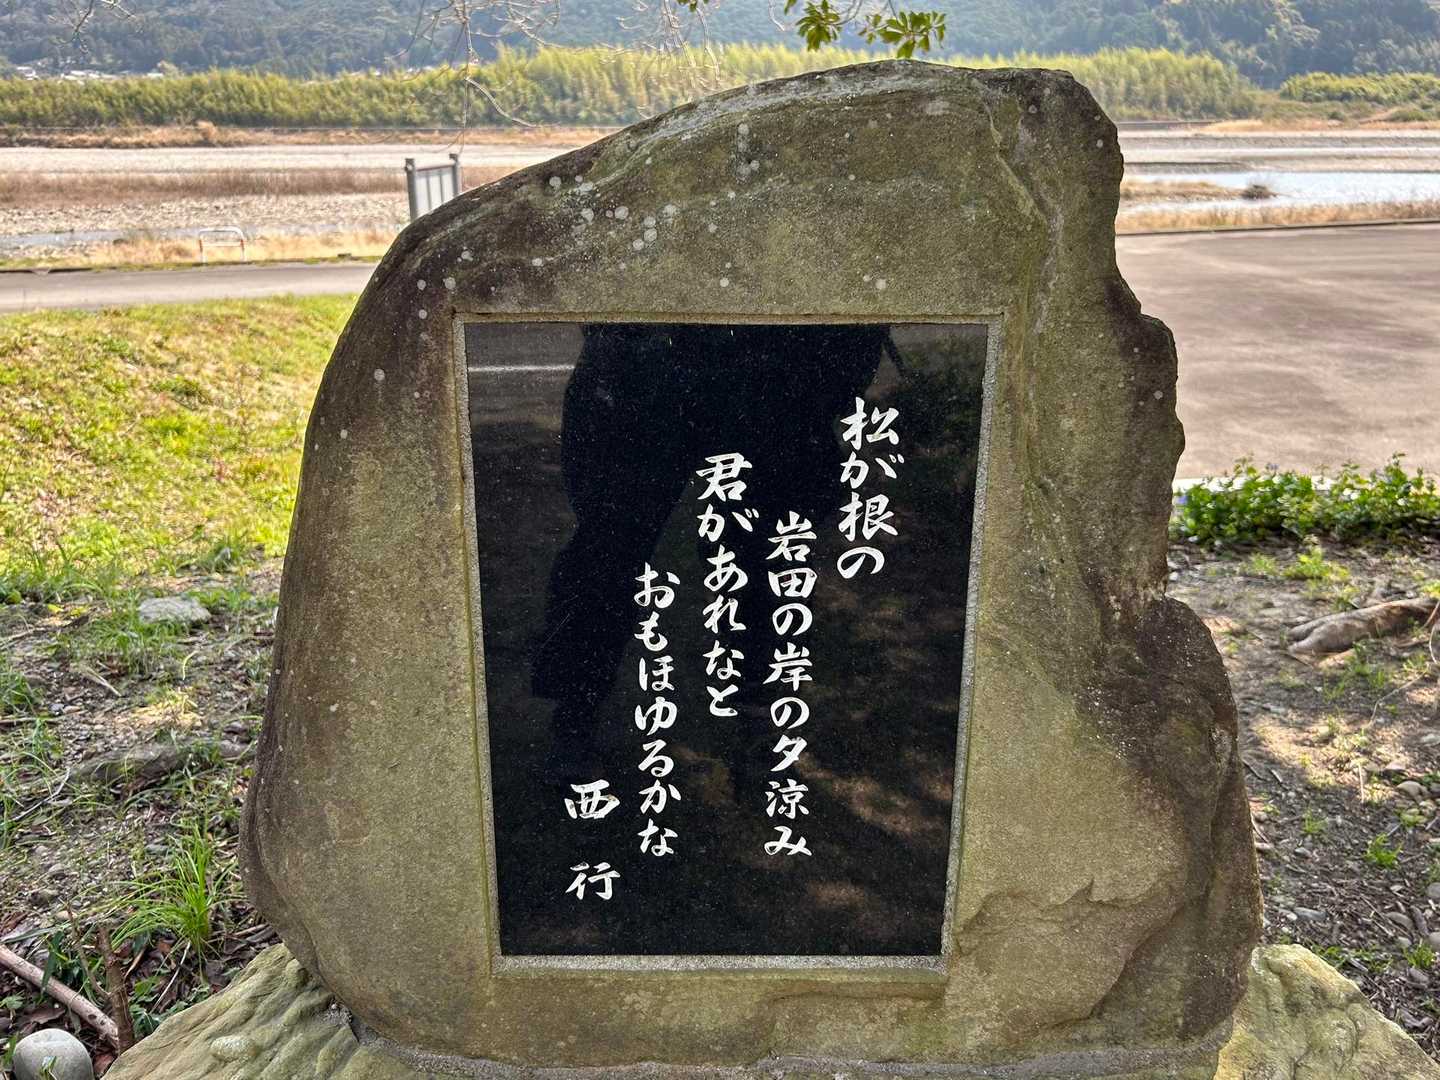 松が根の
岩田の岸の夕涼み
君があれなと
おもほゆるかな
西行